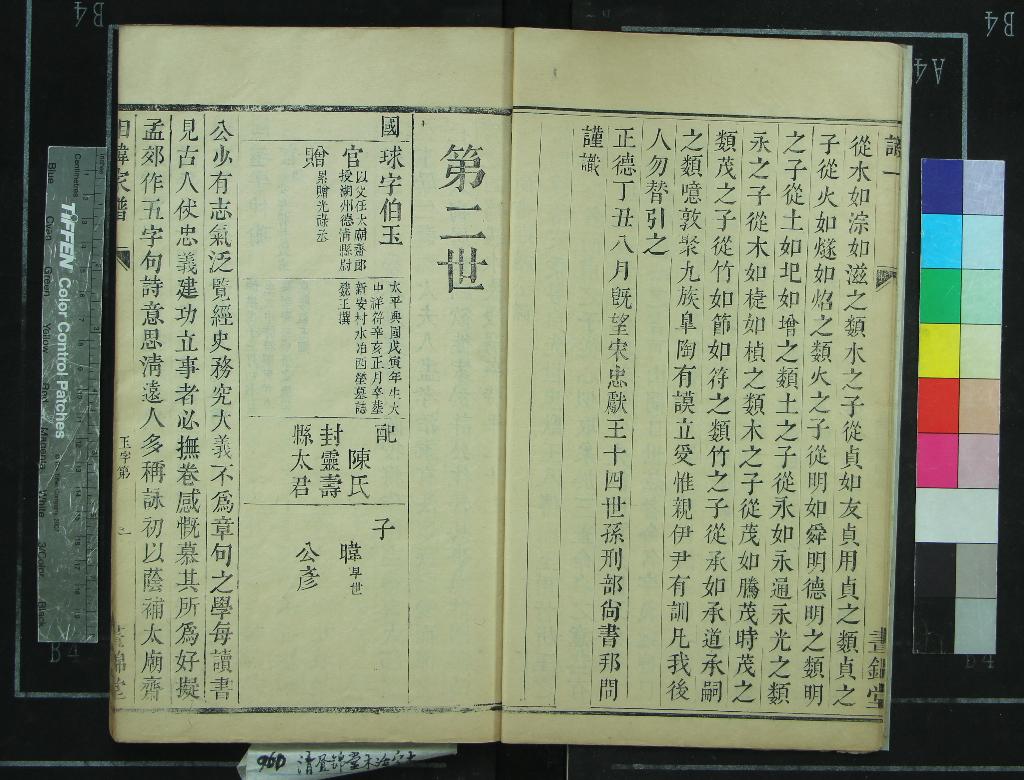 從水如淙如滋之類水之子從貞如友貞用貞之類貞之
子從火如燧如焰之類火之子從明如舜明德明之類明
之子從土如圯如增之類土之子從永如永通永光之類
永之子從木如楗如楨之類木之子從茂如騰茂時茂之
類茂之子從竹如節如符之類竹之子從承如承道承嗣
之類噫敦聚九族臯陶有謨立愛惟親伊尹有訓凡我後
人勿替引之
正德丁丑八月旣望宋忠獻王十四世孫刑部尙書邦問
謹識
晝錦堂
第二世
國
球字伯玉
官
以父任太廟齋郎
授湖州德淸縣尉
贈
累贈光祿丞
太平興國戊寅年生大
中祥符辛亥正月卒葬
新安村水冶西塋墓誌
配
陳氏
封靈壽
縣太君
子
暐早世
公彥
公少有志氣泛覽經史務究大義不爲章句之學每讀書
見古人仗忠義建功立事者必撫卷感慨慕其所爲好擬
孟郊作五字句詩意思淸遠人多稱詠初以蔭補太廟齋
玉字第 一
晝錦堂
TIFFEN Color Control Patches
Blue
Cyan
Green
Yellow
Red
Magenta
White
3/Color
Black
Centimetres
B4
B4
A4
B4
B4
960